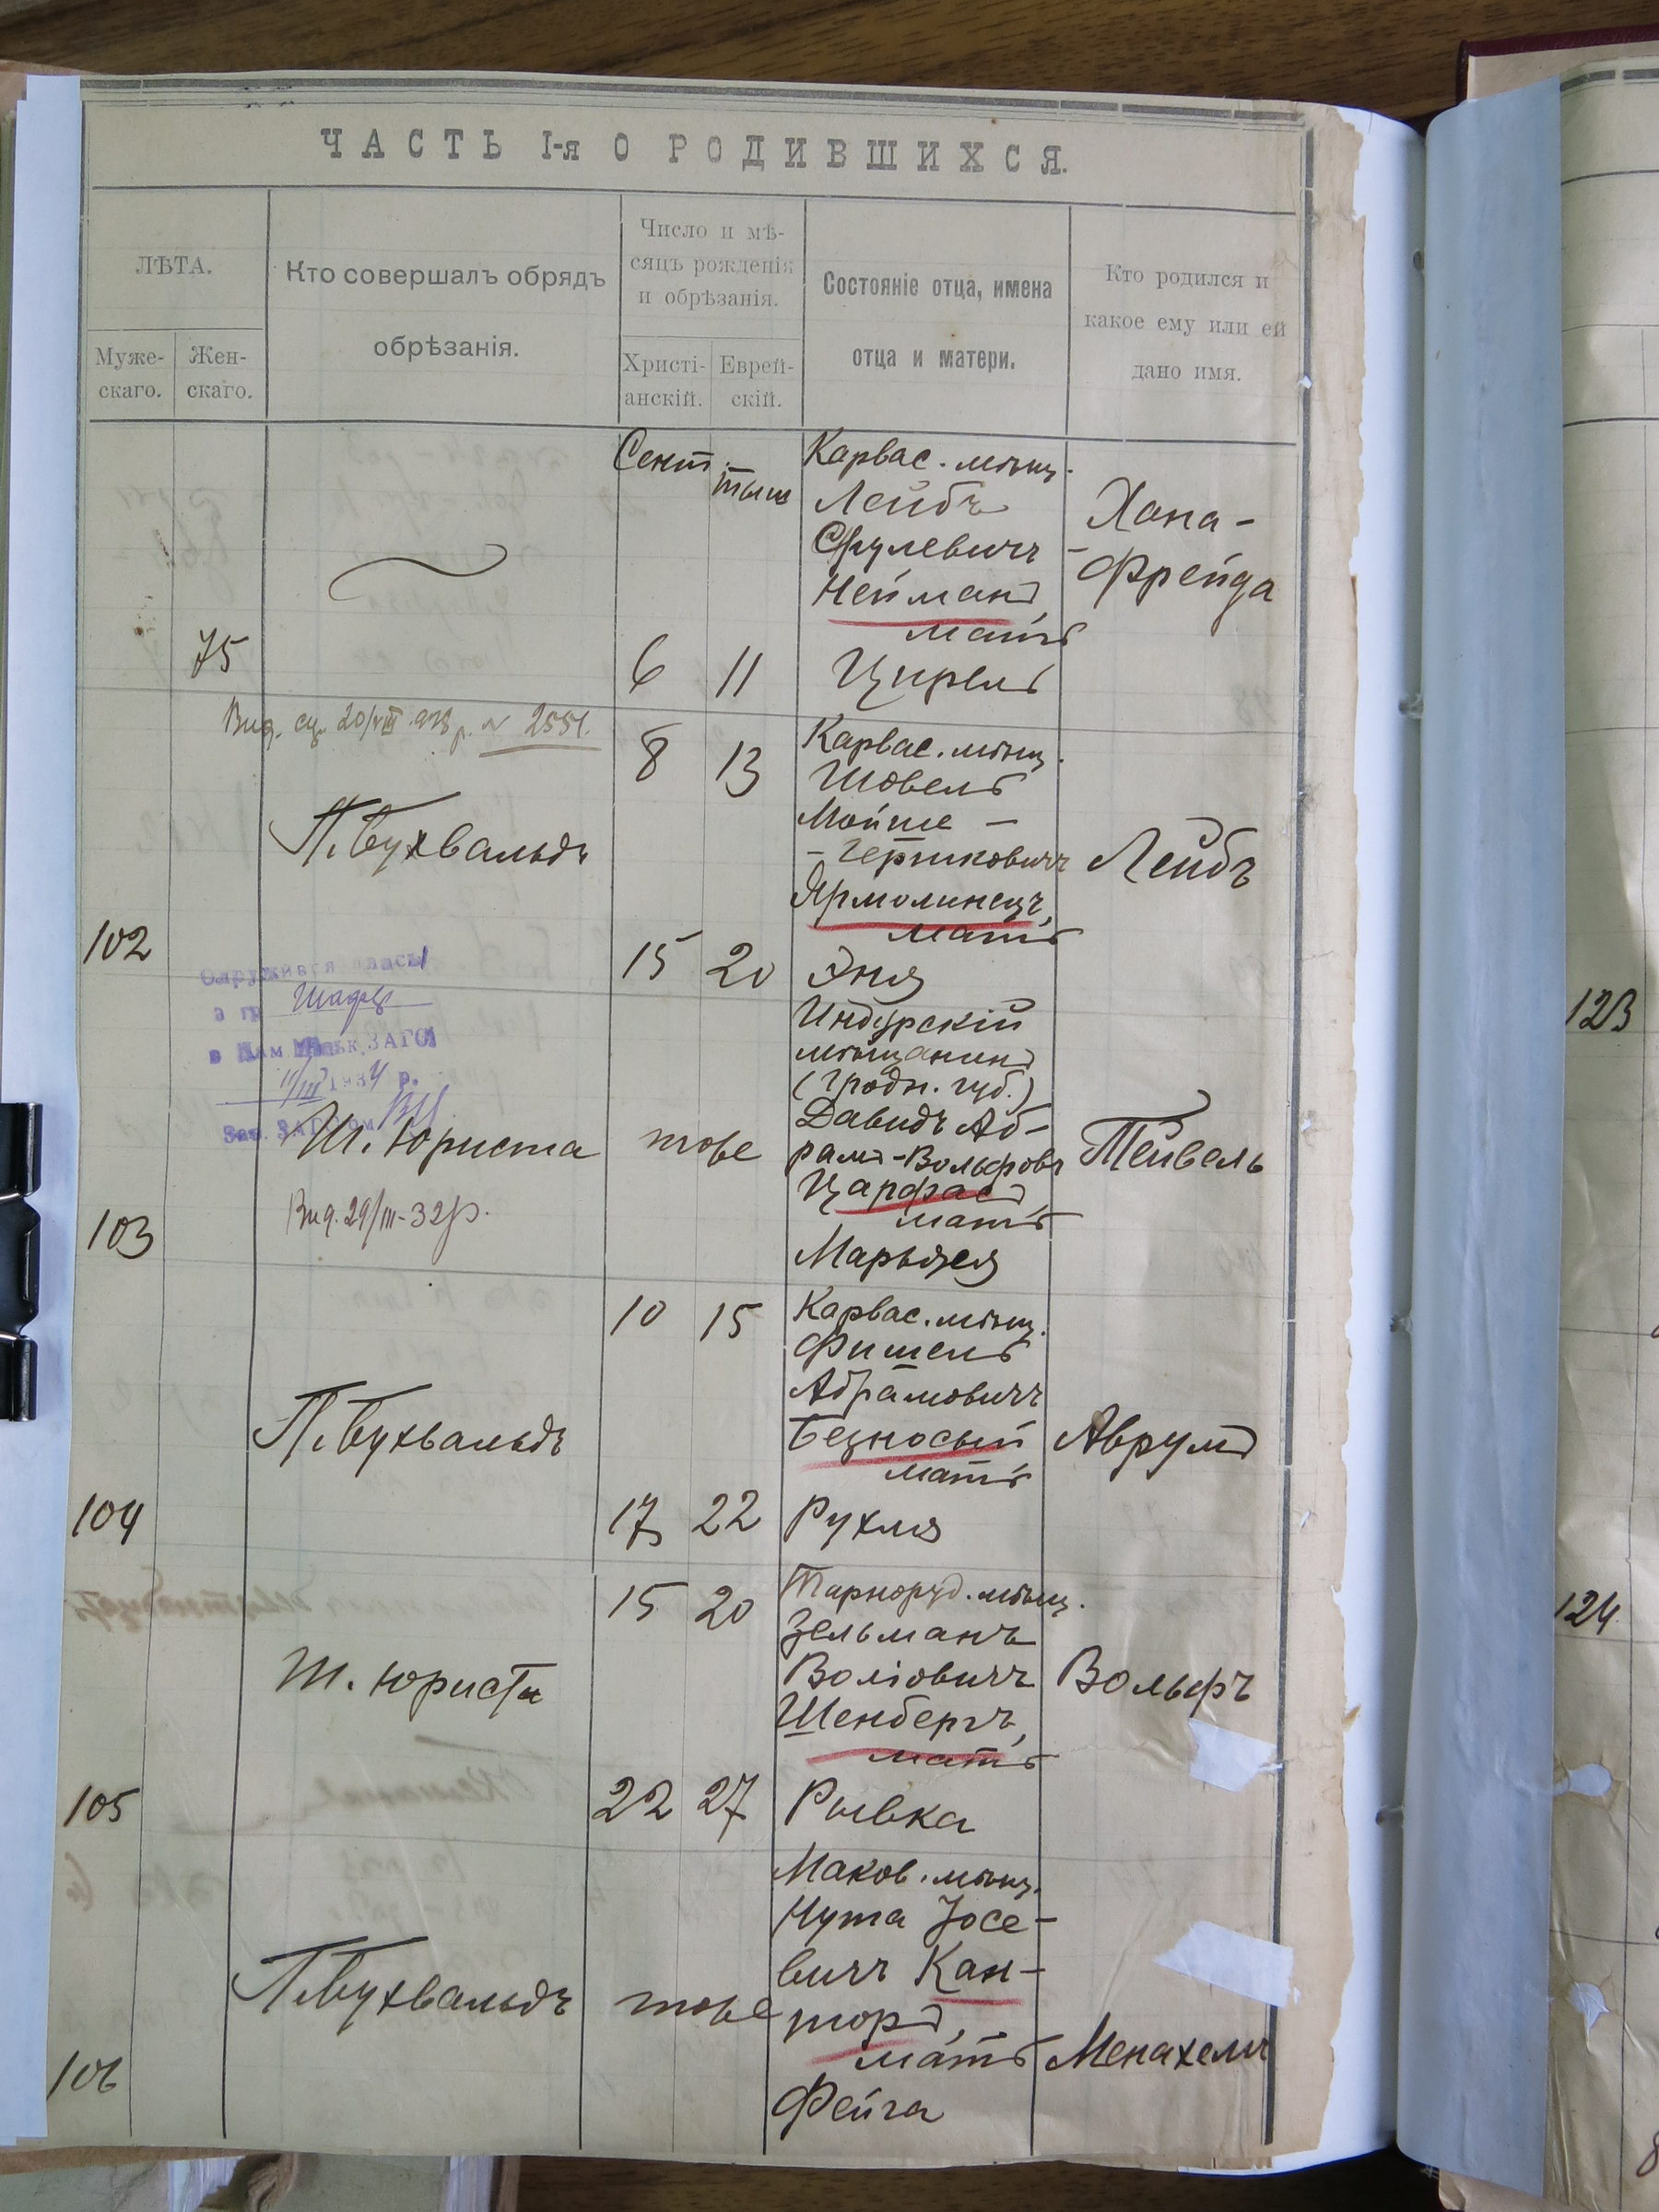 ЧАСТЬ I-я О РОДИВШИХСЯ.
ЛѢТА.
Муже-
скаго.
Жен-
скаго.
Кто совершалъ обрядъ
обрѣзанія.
Число и мѣ-
сяцъ рожденія
и обрѣзанія.
Христі-
анскій.
Еврей-
скій.
Состояніе отца, имена
отца и матери.
Кто родился и
какое ему или ей
дано имя.
Сент.
тыш
Карвас. мѣщ.
Лейбъ
Срулевичъ
Нейманъ,
мать
Цирель
Хана-
-Фрейда
75
6 11
Вид. 20/VIII р. № 2551.
8 13
15 20
П. Бухвальдъ
Карвас. мѣщ.
Шовель
Мойше -
- Гершковичъ
Ярмолинецъ,
мать
Эня
Лейбъ
102
Одружився
з гр.
в Кам ЗАГСі
11/III 1934 р.
Зав. ЗАГСом
Ш. Юриста
тоже
Вид. 29/III-32 р.
Индурскій
мѣщанинъ
(Гродн. губ.)
Давидъ Аб-
рамъ-Вольфовъ
Царфасъ,
мать
Марьяся
Тейвель
103
10 15
17 22
П. Бухвальдъ
Карвас. мѣщ.
Фишель
Абрамовичъ
Безносый
мать
Рухля
Аврумъ
104
15 20
22 27
Ш. Юриста
Тарноруд. мѣщ.
Зельманъ
Волговичъ
Шенбергъ,
мать
Рывка
Вольфъ
105
П. Бухвальдъ
тоже
Маков. мѣщ.
Нута Іосе-
вичъ Кан-
торъ,
мать
Фейга
Менахемъ
106
123
124